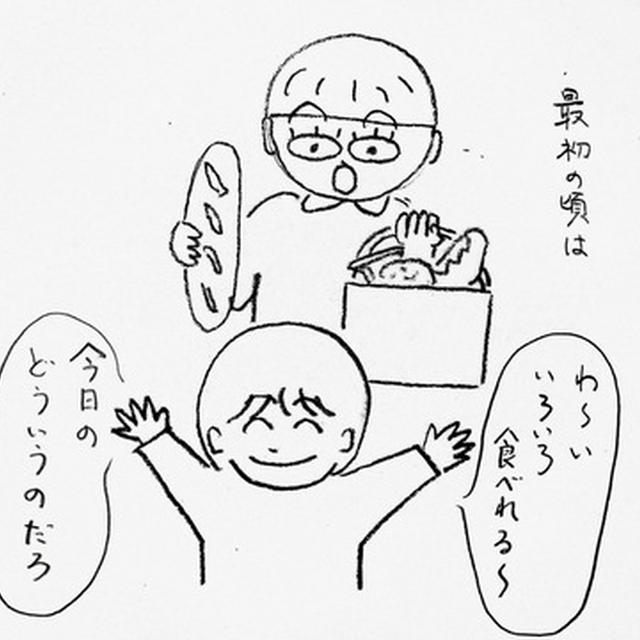 最初の頃は
わ〜い
いろいろ
食べれる〜
今日の
どういうのだろ